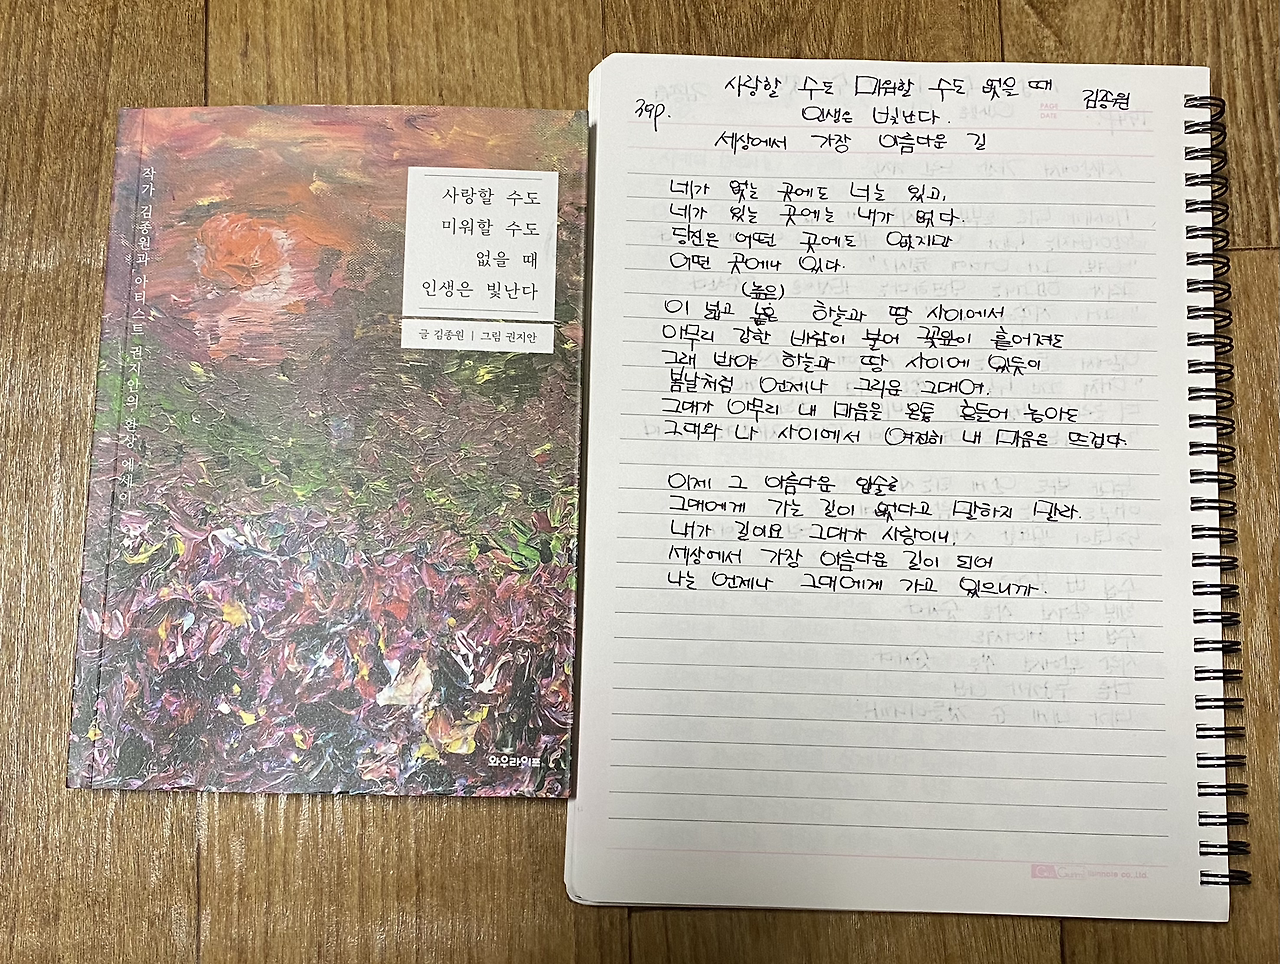 사랑할 수도
미워할 수도
없을 때
인생은 빛난다
글 김종원 | 그림 권지안
작가 김종원과 아티스트 권지안의 환상 에세이
와우라이프
사랑할 수도 미워할 수도 없을 때 김종원
39p. 인생은 빛난다.
세상에서 가장 아름다운 길
네가 없는 곳에도 너는 있고,
네가 있는 곳에는 내가 없다.
당신은 어떤 곳에도 없지만
어떤 곳에나 있다.
(높은)
이 넓고 높은 하늘과 땅 사이에서
아무리 강한 바람이 불어 꽃잎이 흩어져도
그래 봐야 하늘과 땅 사이에 있듯이
봄날처럼 언제나 그리운 그대여,
그대가 아무리 내 마음을 온통 흔들어 놓아도
그대와 나 사이에서 여전히 내 마음은 뜨겁다.
이제 그 아름다운 입술로
그대에게 가는 길이 없다고 말하지 말라.
내가 길이요 그대가 사랑이니,
세상에서 가장 아름다운 길이 되어
나는 언제나 그대에게 가고 있으니까.
PAGE
DATE